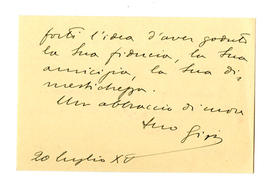 forti l'idea d'aver goduto
la sua fiducia, la sua
amicizia, la sua di-
mestichezza.
Un abbraccio di cuore
Suo
20 luglio XV